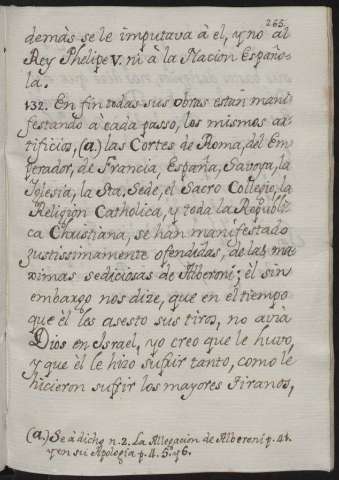 265
demas se le imputava à el, y no al
Rey Phelipe V. ni à la Nacion Españo-
la.
132. En fin todas sus obras estàn mani
festando à cada passo, los mismos ar-
tificios, (a) las Cortes de Roma, del Em-
perador, de Francia, España, Savoya, la
Iglesia, la Sta. Sede, el Sacro Collegio, la
Religion Catholica, y toda la Republi-
ca Christiana, se han manifestado
justissimamente ofendidas, de las ma
ximas sediciosas de Alberoni; èl sin
embargo nos dize, que en el tiempo
que èl los asesto sus tiros, no avia
Dios en Israel, yo creo que le huvo,
y que èl le hizo sufrir tanto, como le
hicieron sufrir los mayores Tiranos,
(a) Se à dicho n. 2. La Allegacion de Alberoni p. 41.
y en su Apologia p. 4. 5. y 6.